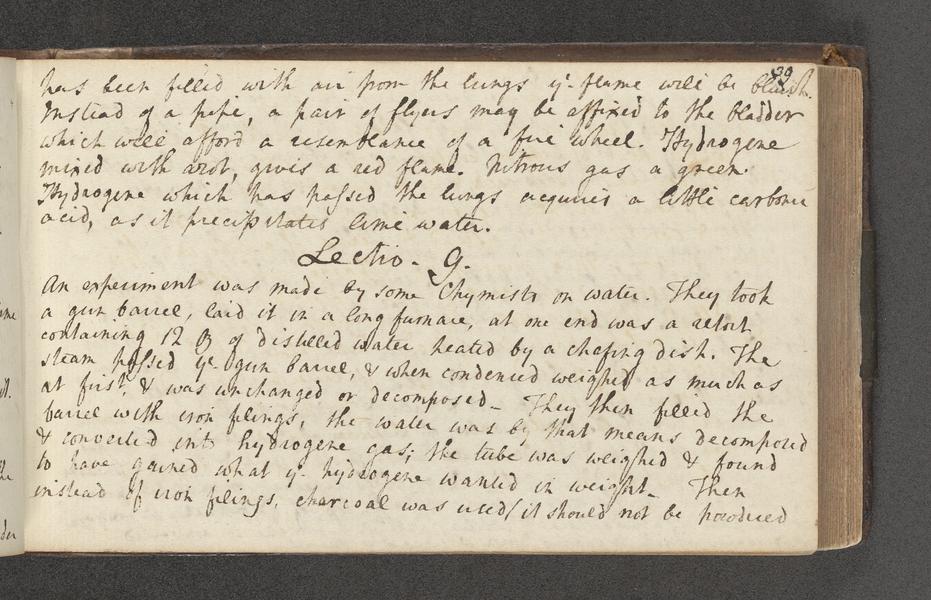 39
has been filled with air from the lungs ye. flame will be bluish.
Instead of a pipe, a pair of flyers may be affixed to the bladder
which will afford a resemblance of a fire wheel. Hydrogene
mixed with azot, gives a red flame. Nitrous gas a green.
Hydrogene which has passed the lungs acquires a little carbonic
acid, as it precipitates lime water.
Lectio. 9.
An experiment was made by some Chymists on water. They took
a gun barrel, laid it in a long furnace, at one end was a retort
containing 12 of distilled water heated by a chafing dish. The
steam passed ye. gun barrel, & when condenced weighed as much as
at first, & was unchanged or decomposed_ They then filled the
barrel with iron filings, the water was by that means decomposed
& converted into hydrogene gas; the tube was weighed & found
to have gained what ye. hydrogene wanted in weight_ Then
instead of iron filings, charcoal was used (it should not be produced